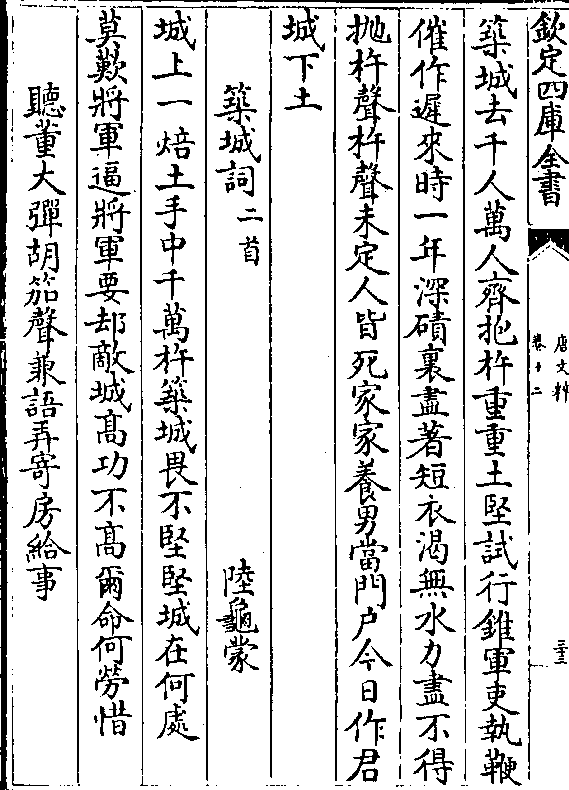 欽定四庫全書
唐文粹
卷十二
三十三
築城去千人萬人齊抱杵重重土堅試行錐軍吏執鞭
催作遲來時一年深磧裏盡著短衣渴無水力盡不得
抛杵聲杵聲未定人皆死家家養男當門户今日作君
城下土
築城詞二首 陸龜蒙
城上一焙土手中千萬杵築城畏不堅堅城在何處
莫歎將軍逼將軍要却敵城髙功不髙爾命何勞惜
聽董大彈胡笳聲兼語弄寄房給事